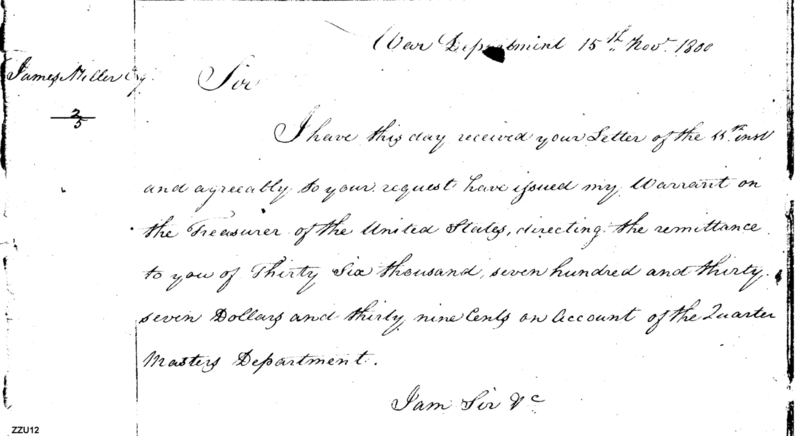 War Department 15th Novr. 1800
James Miller Esq.
2/5
Sir
I have this day received your Letter of the 11th inst
and agreeably to your request have issued my Warrant on
the Treasurer of the United States, directing the remittance
to you of Thirty Six thousand, seven hundred and thirty
seven Dollars and thirty nine Cents on Account of the Quarter
Masters Department.
I am Sir &c
ZZU12